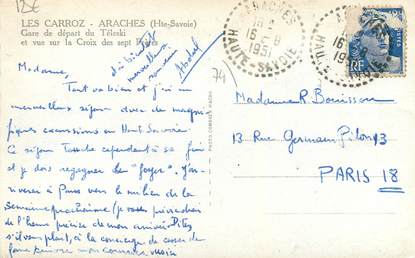 12€
LES CARROZ - ARACHES (Hte-Savoie)
Gare de départ du Téleski
et vue sur la Croix des sept Frères
Madame,
Tout va bien et j'ai un
merveilleux séjour avec de magni-
fiques excursions en Haute Savoie
Ce séjour touche cependant à sa fin
et je dois regagner le "foyer". J'ar-
riverai à Paris vers le milieu de la
semaine prochaine (je vous préviendrai
de l'heure précise de mon arrivée. Dites
s'il vous plait, à la concierge de
mon courrier, mais
à bientôt
merveilleux
souvenir
74
ARACHES
16 -8
195
HAUTE-SAVOIE
RF
Madame R. Bouisson
13 Rue Germain Pilon 13
PARIS 18